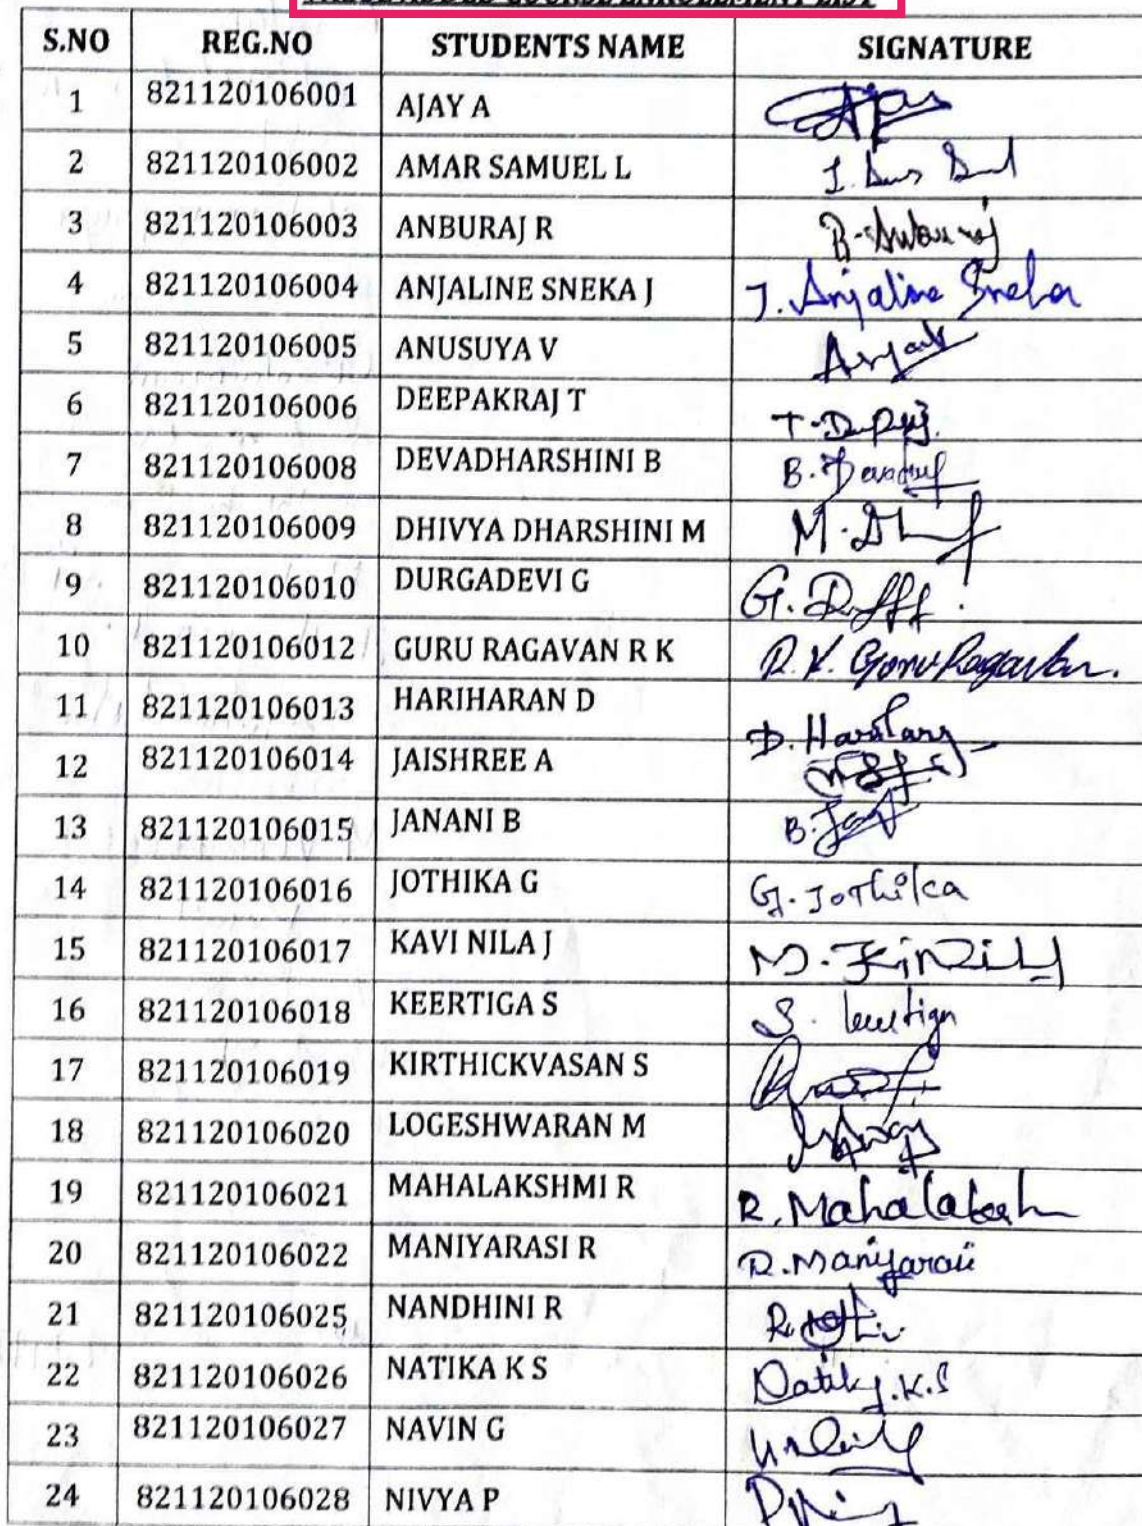 COURSE ENROLLMENT LIST
S.NO REG.NO STUDENTS NAME SIGNATURE
1 821120106001 AJAY A
2 821120106002 AMAR SAMUEL L
3 821120106003 ANBURAJ R
4 821120106004 ANJALINE SNEKA J J. Anjaline Sneha
5 821120106005 ANUSUYA V
6 821120106006 DEEPAKRAJ T
7 821120106008 DEVADHARSHINI B
8 821120106009 DHIVYA DHARSHINI M
9 821120106010 DURGADEVI G
10 821120106012 GURU RAGAVAN R K R.K. Guru Ragavan.
11 821120106013 HARIHARAN D
12 821120106014 JAISHREE A
13 821120106015 JANANI B
14 821120106016 JOTHIKA G G. Jothika
15 821120106017 KAVI NILA J
16 821120106018 KEERTIGA S S. keertiga
17 821120106019 KIRTHICKVASAN S
18 821120106020 LOGESHWARAN M
19 821120106021 MAHALAKSHMI R R. Mahalaksh
20 821120106022 MANIYARASI R R. Maniyarasi
21 821120106025 NANDHINI R
22 821120106026 NATIKA K S Natika.K.S
23 821120106027 NAVIN G
24 821120106028 NIVYA P